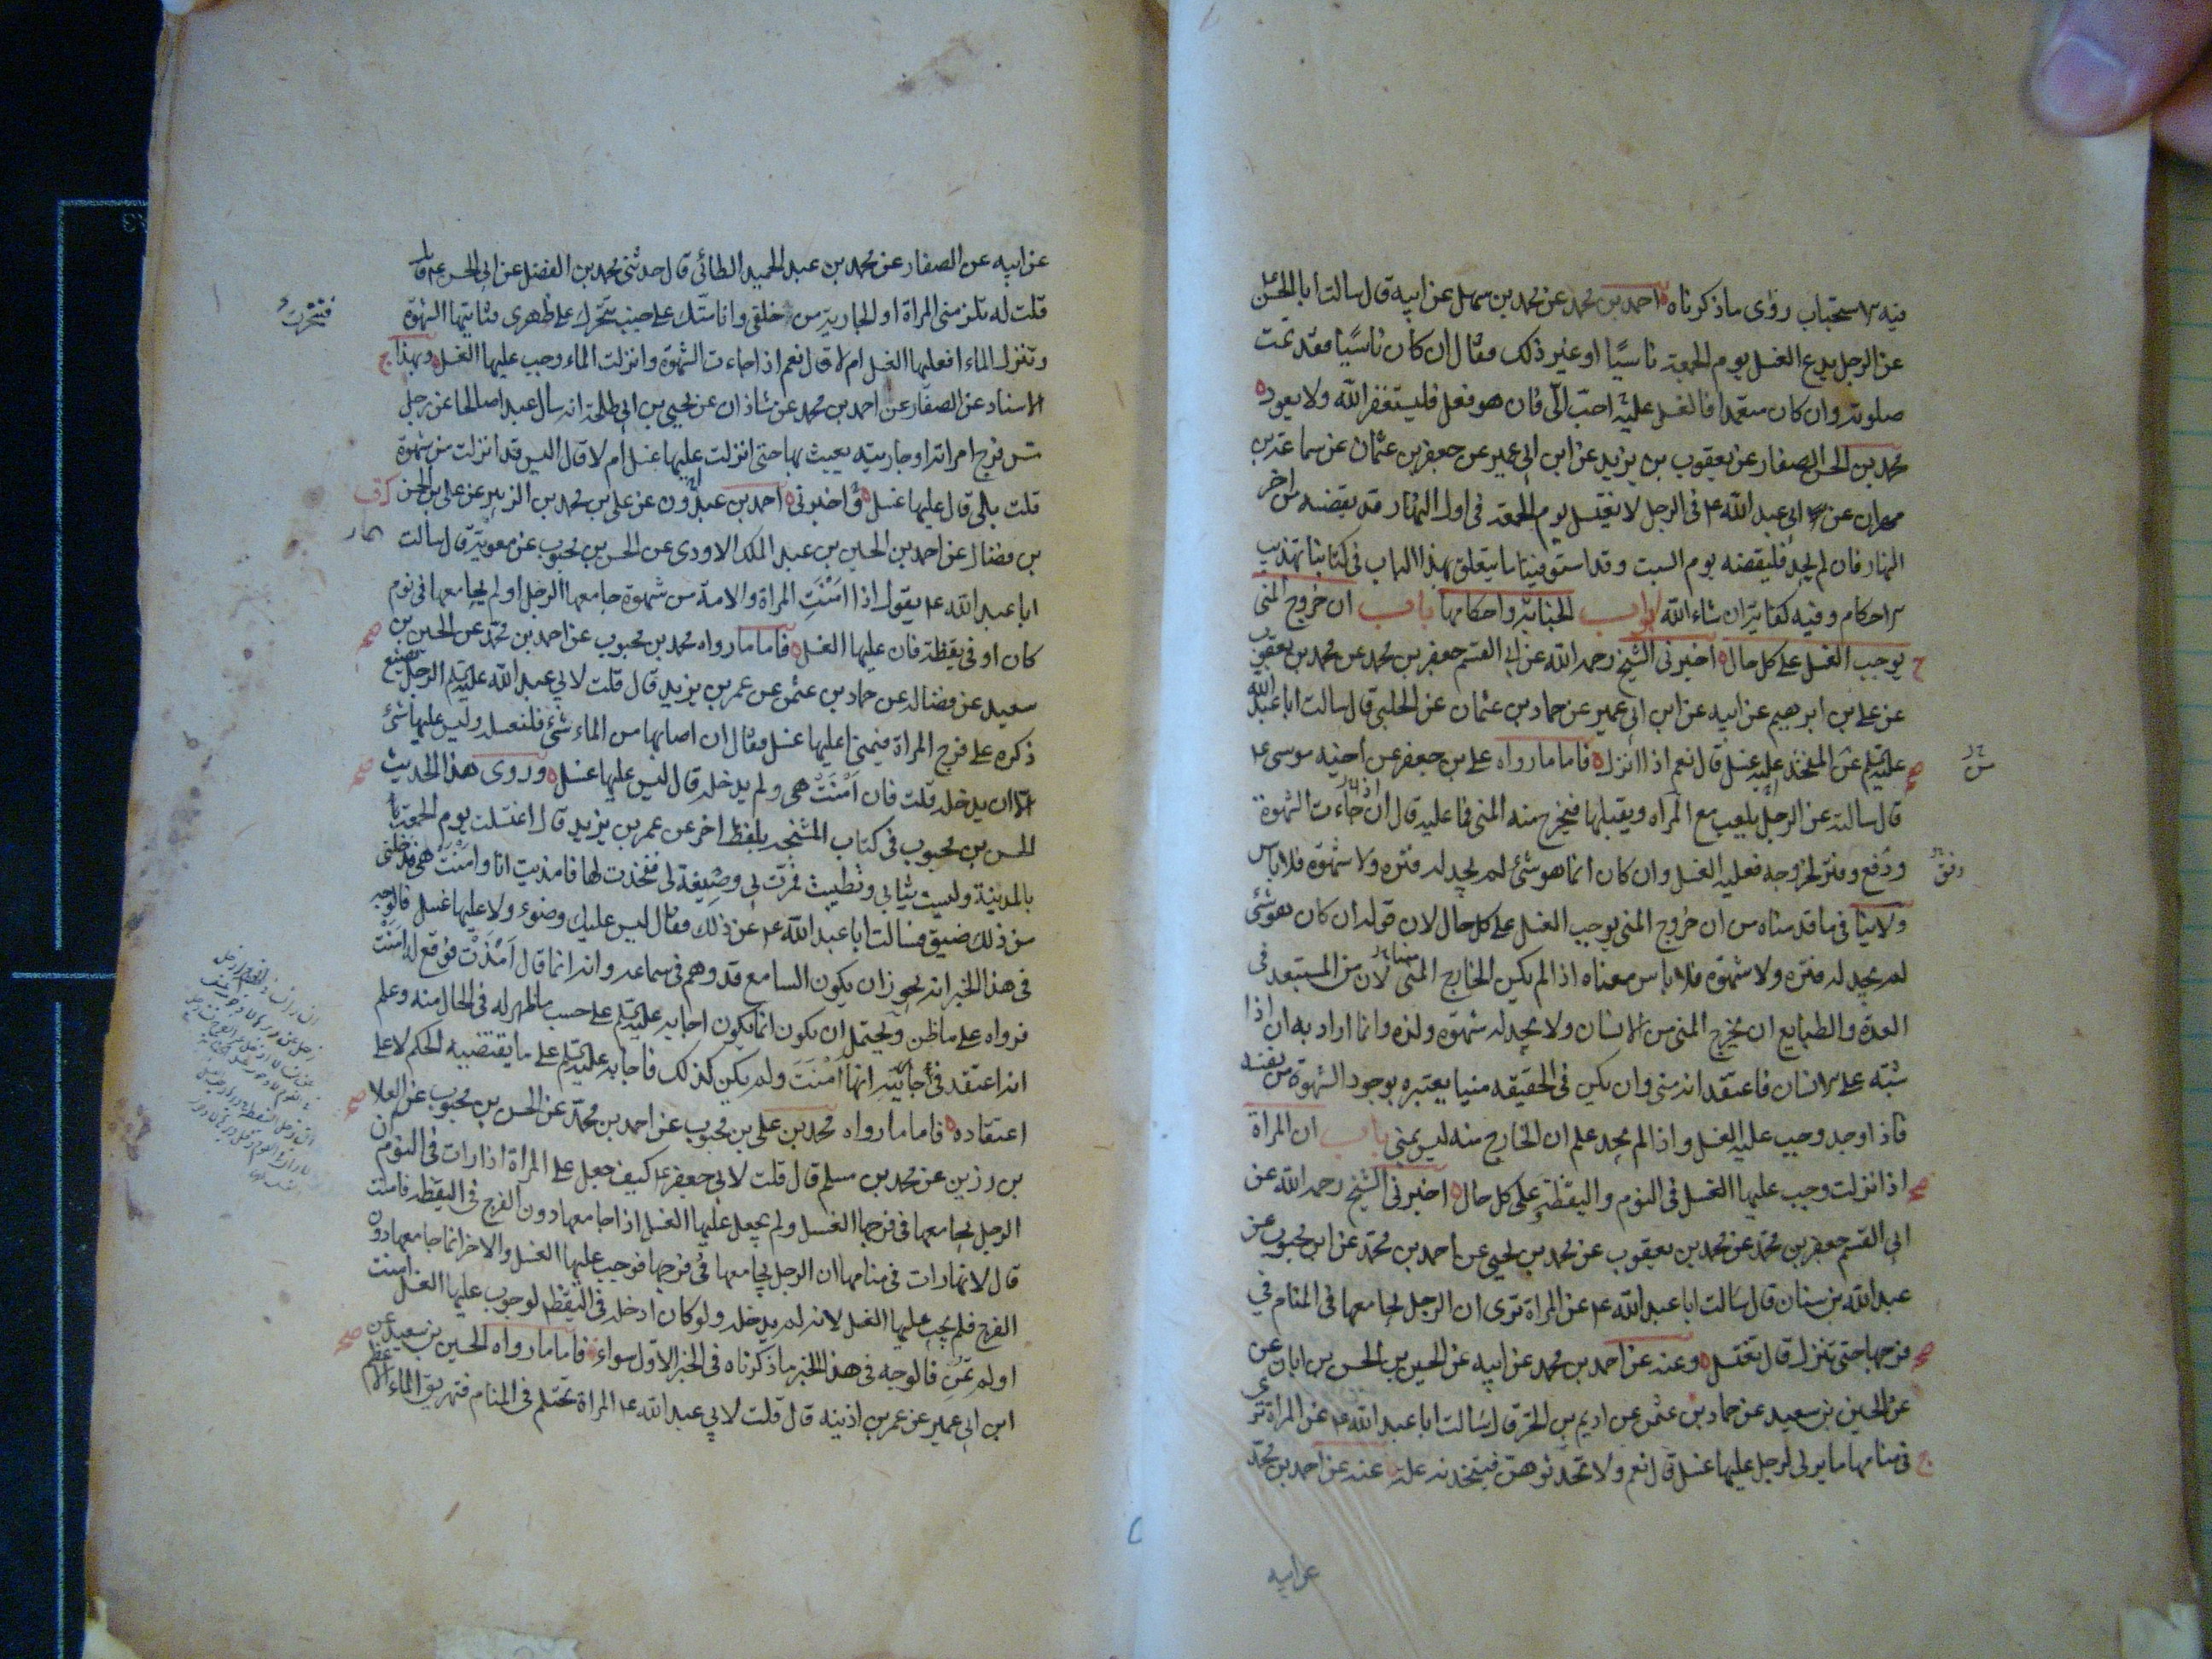 فيه الاستحباب روى ما ذكرناه احمد بن محمد عن محمد بن سهل عن ابيه قال سالت ابا الحسن ع
عن الرجل يدع الغسل يوم الجمعة ناسيًا او غير ذلك فقال ان كان ناسيًا فقد تمت
صلوته وان كان متعمدا فالغسل عليه احبّ الىّ فان هو فعل فليستغفر الله ولا يعود
محمد بن الحسن الصفار عن يعقوب بن يزيد عن ابن ابي عمير عن جعفر بن عثمان عن سماعة بن
مهران عن ابي عبد الله ع في الرجل لا يغتسل يوم الجمعة في اول النهار قد يقضيه من اخر
النهار فان لم يجد فليقضه يوم السبت وقد استوفينا ما يتعلق بهذا الباب في كتابنا تهذيب
الاحكام وفيه كفاية ان شاء الله ابواب الجنابة واحكامها باب ان خروج المني
يوجب الغسل على كل حال اخبرني الشيخ رحمه الله عن ابي القسم جعفر بن محمد عن محمد بن يعقوب
عن علي بن ابرهيم عن ابيه عن ابن ابي عمير عن حماد بن عثمان عن الحلبي قال سالت ابا عبد الله
عليه السلم عن المفخذ عليه غسل قال نعم اذا انزل فاما ما رواه علي بن جعفر عن اخيه موسى ع
قال سالته عن الرجل يلعب مع المراه ويقبلها فيخرج منه المني فما عليه قال ان جاءت الشهوة
ودفع وفتر لخروجه فعليه الغسل وان كان انما هو شئ لم يجد له فتره ولا شهوة فلا باس
ولا ينافي ما قدمناه من ان خروج المني يوجب الغسل على كل حال لان قوله ان كان هو شئ
لم يجد له فتره ولا شهوة فلا باس معناه اذا لم يكن الخارج المني لان من المستبعد في
العدة والطبايع ان يخرج المني من الانسان ولا يجد له شهوة ولذه وانما اراد به ان اذا
شبّه على الانسان فاعتقد انه مني وان يكن في الحقيقه منيا يعتبره بوجود الشهوة من نفسه
فاذا وجد وجب عليه الغسل واذا لم يجد علم ان الخارج منه ليس بمني باب ان المراة
اذا انزلت وجب عليها الغسل في النوم واليقظة وعلى كل حال اخبرني الشيخ رحمه الله عن
ابي القسم جعفر بن محمد عن محمد بن يعقوب عن محمد بن يحيى عن احمد بن محمد عن ابن محبوب عن
عبد الله بن سنان قال سالت ابا عبد الله ع عن المراة ترى ان الرجل يجامعها في المنام في
فرجها حتى تنزل قال تغتسل وعنه عن احمد بن محمد عن ابيه عن الحسين بن الحسن بن ابان عن
عن الحسين بن سعيد عن حماد بن عثمن عن اديم بن الحر قال سالت ابا عبد الله ع عن المراة ترى
في منامها ما يرى الرجل عليها غسل قال نعم ولا تحدثوهن فيتخذنه علة عنه عن احمد بن محمد
عن ابيه
عن ابيه عن الصفار عن محمد بن عبد الحميد الطائي قال حدثني محمد بن الفضل عن ابي الحسن ع قال
قلت له تلزمني المراة او الجارية من خلفي وانا متّك على جنب تتحرك على ظهري فتاتيها الشهوة
وتنزل الماء افعليها الغسل ام لا قال نعم اذا جاءت الشهوة وانزلت الماء وجب عليها الغسل وبهذا
الاسناد عن الصفار عن احمد بن محمد عن شاذان عن يحيى بن ابي طلحة انه سال عبدا صالحا عن رجل
مس فرج امراته او جاريته يعبث بها حتى انزلت عليها غسل ام لا قال اليس قد انزلت من شهوة
قلت بلى قال عليها غسل واخبرني احمد بن عبدون عن علي بن محمد بن الزبير عن علي بن الحسن
بن فضال عن احمد بن الحسين بن عبد الملك الاودي عن الحسن بن محبوب عن معوية قال سالت
ابا عبد الله ع يقول اذا امنت المراة والامة من شهوة جامعها الرجل او لم يجامعها في نوم
كان او في يقظة فان عليها الغسل فاما ما رواه محمد بن محبوب عن احمد بن محمد عن الحسين بن
سعيد عن فضالة عن حماد بن عثمن عن عمر بن يزيد قال قلت لابي عبد الله عليه السلم الرجل يضع
ذكره على فرج المراة فيمني اعليها غسل فقال ان اصابها من الماء شئ فلتغسله وليس عليها شئ
الا ان يدخله قلت فان امنت هي ولم يدخله قال ليس عليها غسل وروى هذا الحديث
الحسن بن محبوب في كتاب المشيخة بلفظ اخر عن عمر بن يزيد قال اغتسلت يوم الجمعة
بالمدينة ولبست ثيابي وتطيبت فمرّت بي وصيفة لي ففخذت لها فامذيت انا وامنت هي فدخلني
من ذلك ضيق فسالت ابا عبد الله ع عن ذلك فقال ليس عليك وضوء ولا عليها غسل فالوجه
في هذا الخبر انه يجوز ان يكون السامع قد وهم في سماعه وانه انما قال امذت فوقع له امنت
فرواه على ما ظن ويحتمل ان يكون انما يكون اجابه عليه السلم على حسب ما ظهر له في الحال منه وعلم
انه اعتقد في جاريته انها امنت ولم يكن كذلك فاجابه عليه السلم على ما يقتضيه الحكم لا على
اعتقاده فاما ما رواه محمد بن علي بن محبوب عن احمد بن محمد عن الحسن بن محبوب عن العلا
بن رزين عن محمد بن مسلم قال قلت لابي جعفر ع كيف جعل على المراة اذا رات في النوم ان
الرجل يجامعها في فرجها الغسل ولم يجعل عليها الغسل اذا جامعها دون الفرج في اليقظه فامنت
قال لانها رات في منامها ان الرجل يجامعها في فرجها فوجب عليها الغسل والاخر انما جامعها دون
الفرج فلم يجب عليها الغسل لانه لم يدخله ولو كان ادخله في اليقظه لوجب عليها الغسل امنت
او لم تمن فالوجه في هذا الخبر ما ذكرناه في الخبر الاول سواء فاما ما رواه الحسين بن سعيد عن
ابن ابي عمير عن عمر بن اذينه قال قلت لابي عبد الله ع المراة تحتلم في المنام فتهريق الماء الاعظم